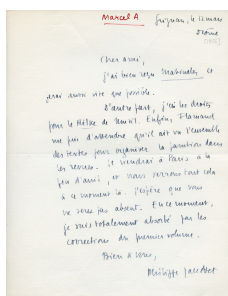 Marcel A
Grignan, le 12 mars
Drôme
Cher ami,
j'ai bien reçu Mathuhles et
irai aussi vite que possible.
D'autre part, j'ai les droits
pour le Hölne de Musil. Enfin, Flamand
me prie d'attendre qu'il ait vu l'ensemble
des textes pour organiser la parution dans
les revues. Je viendrai à Paris à la
fin d'avril, et nous verrons tout cela
à ce moment-là. J'espère que vous
ne serez pas absent. En ce moment,
je suis totalement absorbé par les
corrections du premier volume.
Bien à vous,
Philippe Jaccottet